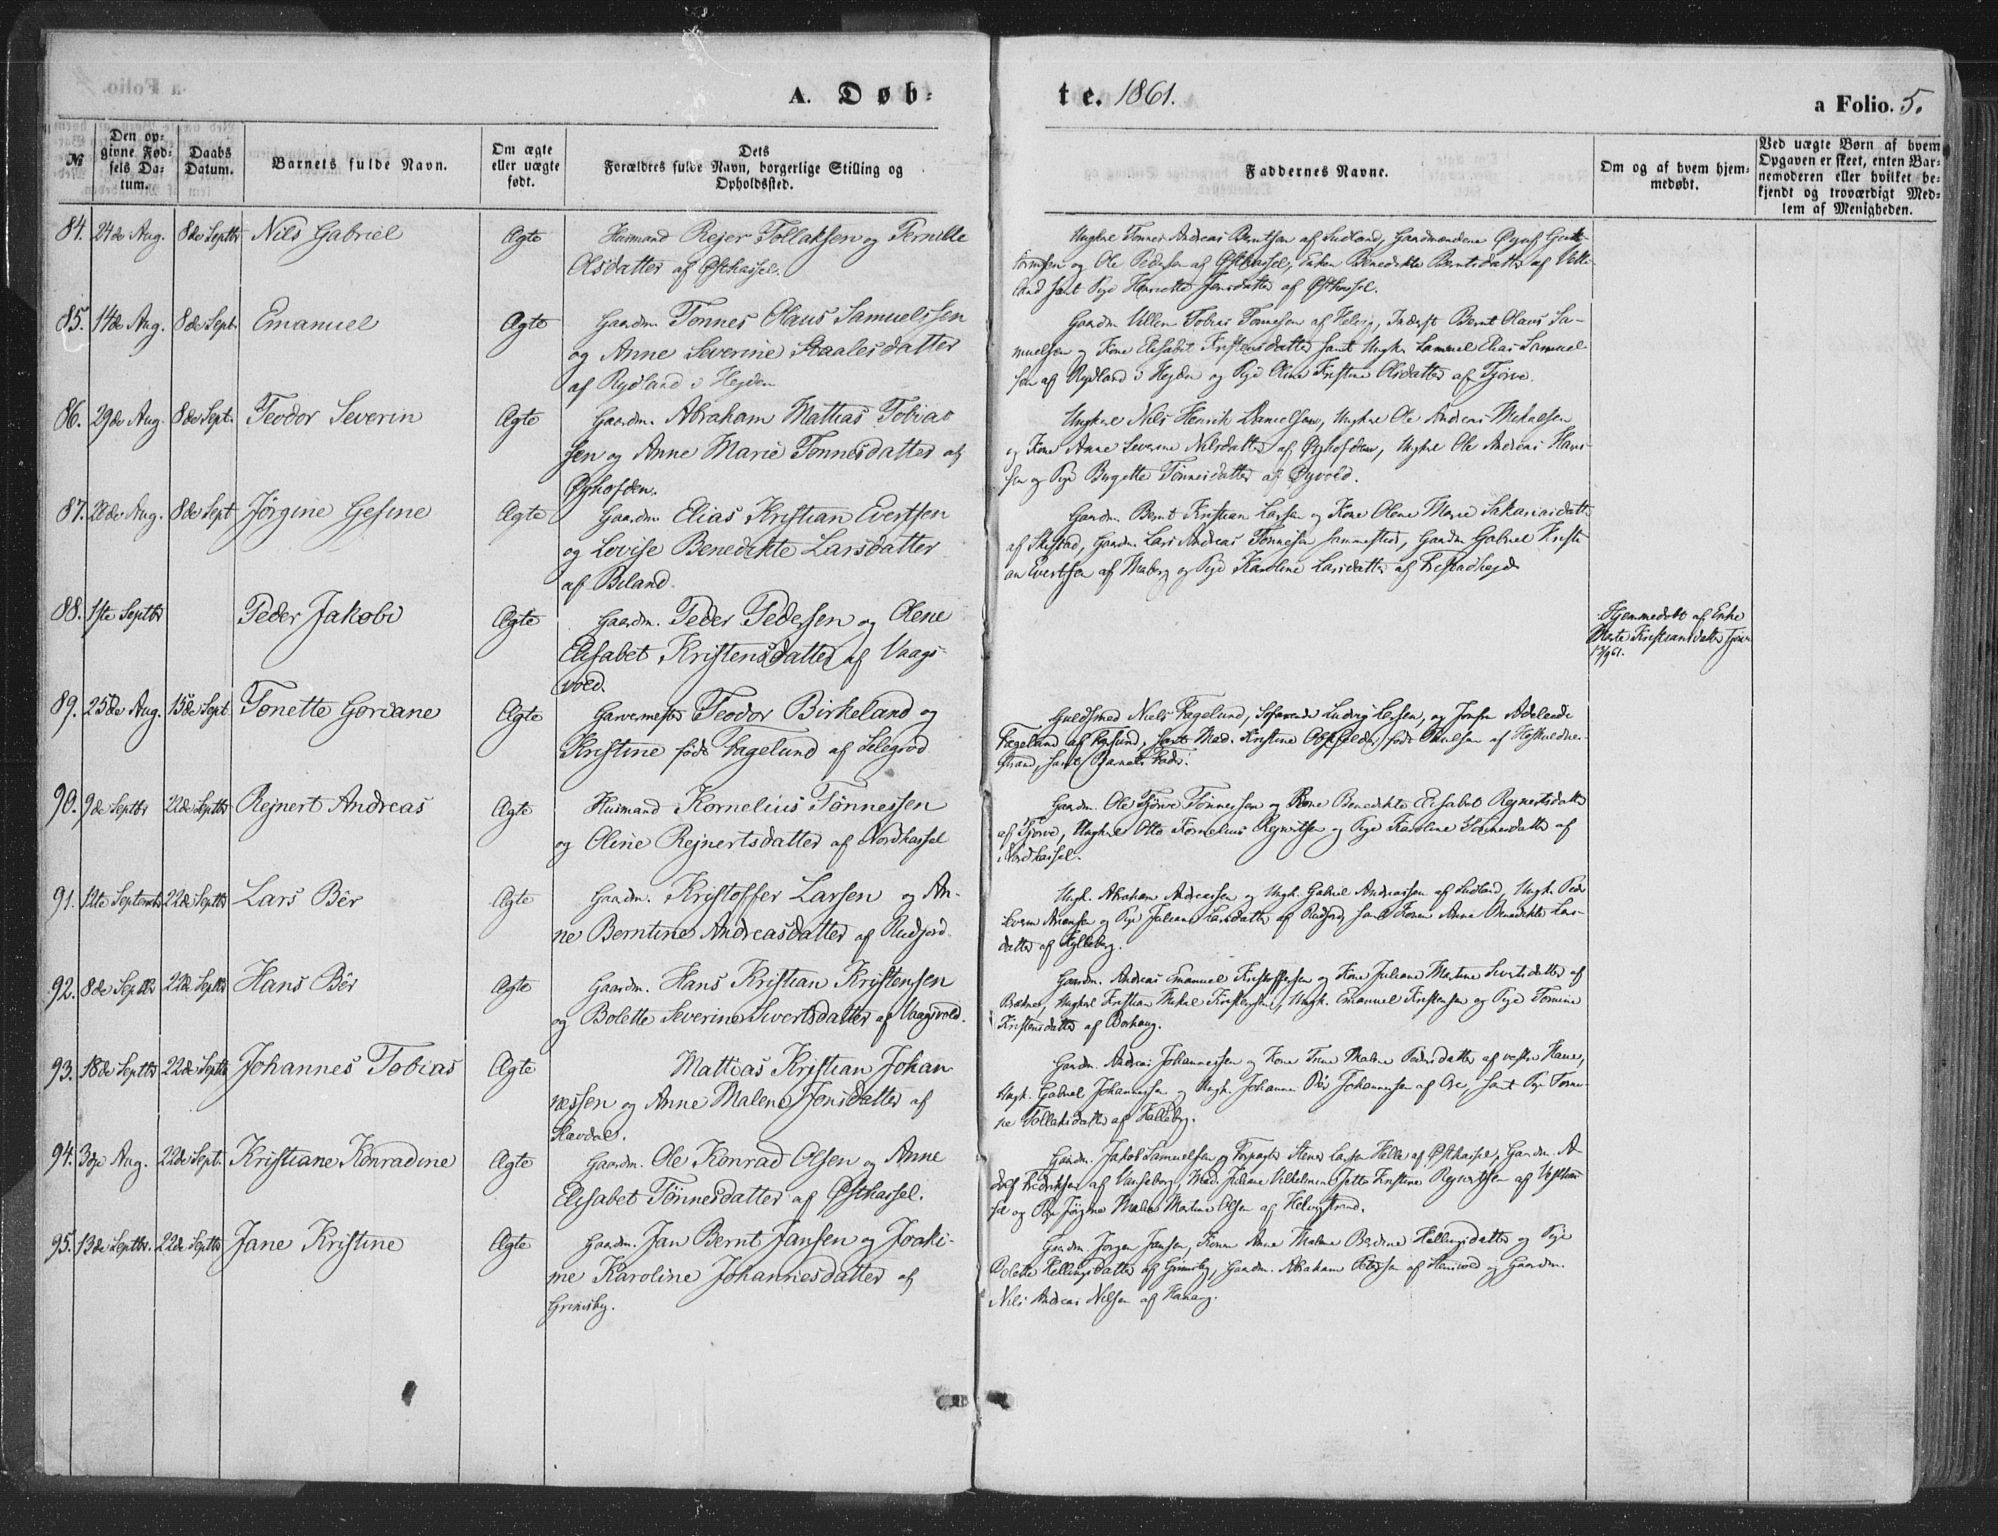 A. Døb-
te. 1861.
a Folio. 5.
№
Den op-
givne Fød-
sels Da-
tum.
Daabs
Datum.
Barnets fulde Navn.
Om ægte
eller uægte
født.
Dets
Forældres fulde Navn, borgerlige Stilling og
Opholdssted.
Faddernes Navne.
Om og af hvem hjem-
medøbt.
Ved uægte Børn af hvem
Opgaven er skeet, enten Bar-
nemoderen eller hvilket be-
kjendt og troværdigt Med-
lem af Menigheden.
84. 24de Aug. 8de Septbr Nils Gabriel Ægte Husmand Rejer Tollaksen og Pernille
Olsdatter af Østhassel.
Ungkrl Tønnes Andreas Berntsen af Sudland, Gaardmændene
og Ole Pedersen af Østhassel, Enken Benedikte Berntsdatter af
samt Pige Henriette Jensdatter af Østhassel.
85. 14de Aug. 8de Sept. Emanuel Ægte Gaardm. Tønnes Olaus Samuelssen
og Anne Severine Staalesdatter
af Rydland i Hejden
Gaardm Villem Tobias Tønnesen af Helvig, Inderst Bernt Olaus Sa-
muelsen og Kone Elisabet Kristensdatter samt Ungk. Samuel Elias Samuel
sen af Rydland i Hejden og Pige Oline Kristine Olsdatter af Tjørve.
86. 29de Aug. 8de Sept. Teodor Severin Ægte Gaardm. Abraham Mattias Tobias
sen og Anne Marie Tønnesdatter af
Ophofden.
Ungkrl Nils Henrik Danielsen, Ungkrl Ole Andreas Mikaelsen
og Kone Anne Severine Nilsdatter af Ophofden, Ungkrl Ole Andreas Hans-
sen og Pige Birgitte Tønnesdatter af
87. 22de Aug. 8de Sept Jørgine Gesine Ægte Gaardm Elias Kristian Evertsen
og Lovise Benedikte Larsdatter
af Biland.
Gaardm Bernt Kristian Larsen og Kone Olene Marie Sakariasdatt.
af Skistad, Gaardm Lars Andreas Tønnesen sammesteds, Gaardm Gabriel Kristi
an Evertsen af Maberg og Pige Karoline Larsdatter af
88. 1ste Septbr Peder Jakobi Ægte Gaardm. Peder Pedersen og Olene
Elisabet Kristensdatter af Vaags-
vold.
Hjemmedøbt af Enke
Marte Kristiansdatter
89. 25de Aug. 15de Sept. Tonette Goriane Ægte Garvermester Teodor Birkeland og
Kristine født Fagelund af Selegrod
Guldsmed Niels Fagelund, Søfarende Ludvig og Jomfr Adeleide
Fagelund af Farsund, samt Mad. Kristine født Poulsen af
strand, samt Barnets Fader.
90. 9de Septbr 22de Septbr Rejnert Andreas Ægte Husmand Kornelius Tønnessen
og Oline Rejnertsdatter af Nordhassel
Gaardm. Ole Tjørve Tønnessen og Kone Benedikte Elisabet Rejnertsdatter
af Tjørve, Ungkrl Otto Kornelius Rejnertsen og Pige Karoline Tønnesdatter af
Nordhassel.
91. 12te Septembr 22de Septbr Lars Bêr Ægte Gaardm. Kristoffer Larsen og An-
ne Berntine Andreasdatter af Rudjord
Ungk. Abraham Andreassen og Ungk. Gabriel Andreassen af Sudland, Ungk. Peder
og Pige Juliane Larsdatter af Rudjord, samt Konen Anne Benedikte Lars-
datter af
92. 8de Septbr 22de Septbr Hans Bêr Ægte Gaardm. Hans Kristian Kristensen
og Bolette Severine Sivertsdatter af Vaagsvold.
Gaardm. Andreas Emanuel Kristoffersen og Kone Juliane Martine Sivertsdatter af
Brækne, Ungkrl Kristian Mikal Kristensen, Ungk. Emanuel Kristensen og Pige Tomine
Kristensdatter af Borhaug.
93. 18de Septbr 22de Septbr Johannes Tobias Ægte Mattias Kristian Johan
nessen og Anne Malene Jonsdatter af
Slavdal.
Gaardm. Andreas Johannessen og Kone Trine Malene Pedersdatter af vestre Haue,
Ungk. Gabriel Johannessen og Ungk. Johannes Bêr Johannessen af Ore, samt Pige Tomi-
ne Tollaksdatter af
94. 3die Aug. 22de Sept. Kristiane Konradine Ægte Gaardm. Ole Konrad Olsen og Anne
Elisabet Tønnesdatter af Østhassel.
Gaardm. Jakob Samuelsen og Forpagter Stener Larsen Helle af Østhassel, Gaardm. A-
dolf Fredriksen af Vanseborg, Mad. Juliane Vilhelmine Jette Kristine Rejnertsen af Vesthas-
sel og Pige Jørgine Malene Martine Olsen af Helvigstrand.
95. 13de Septbr. 22de Septbr Jane Kristine Ægte Gaardm. Jan Bernt Jansen og Joaki-
me Karoline Johannesdatter af
Grimsby.
Gaardm. Jørgen Jansen, Konen Anne Malene Berdine Hellingsdatter og Pige
Bolette Hellingsdatter af Grimsby, Gaardm. Abraham Petersen af og Gaardm.
Nils Andreas Nilsen af Hanang.